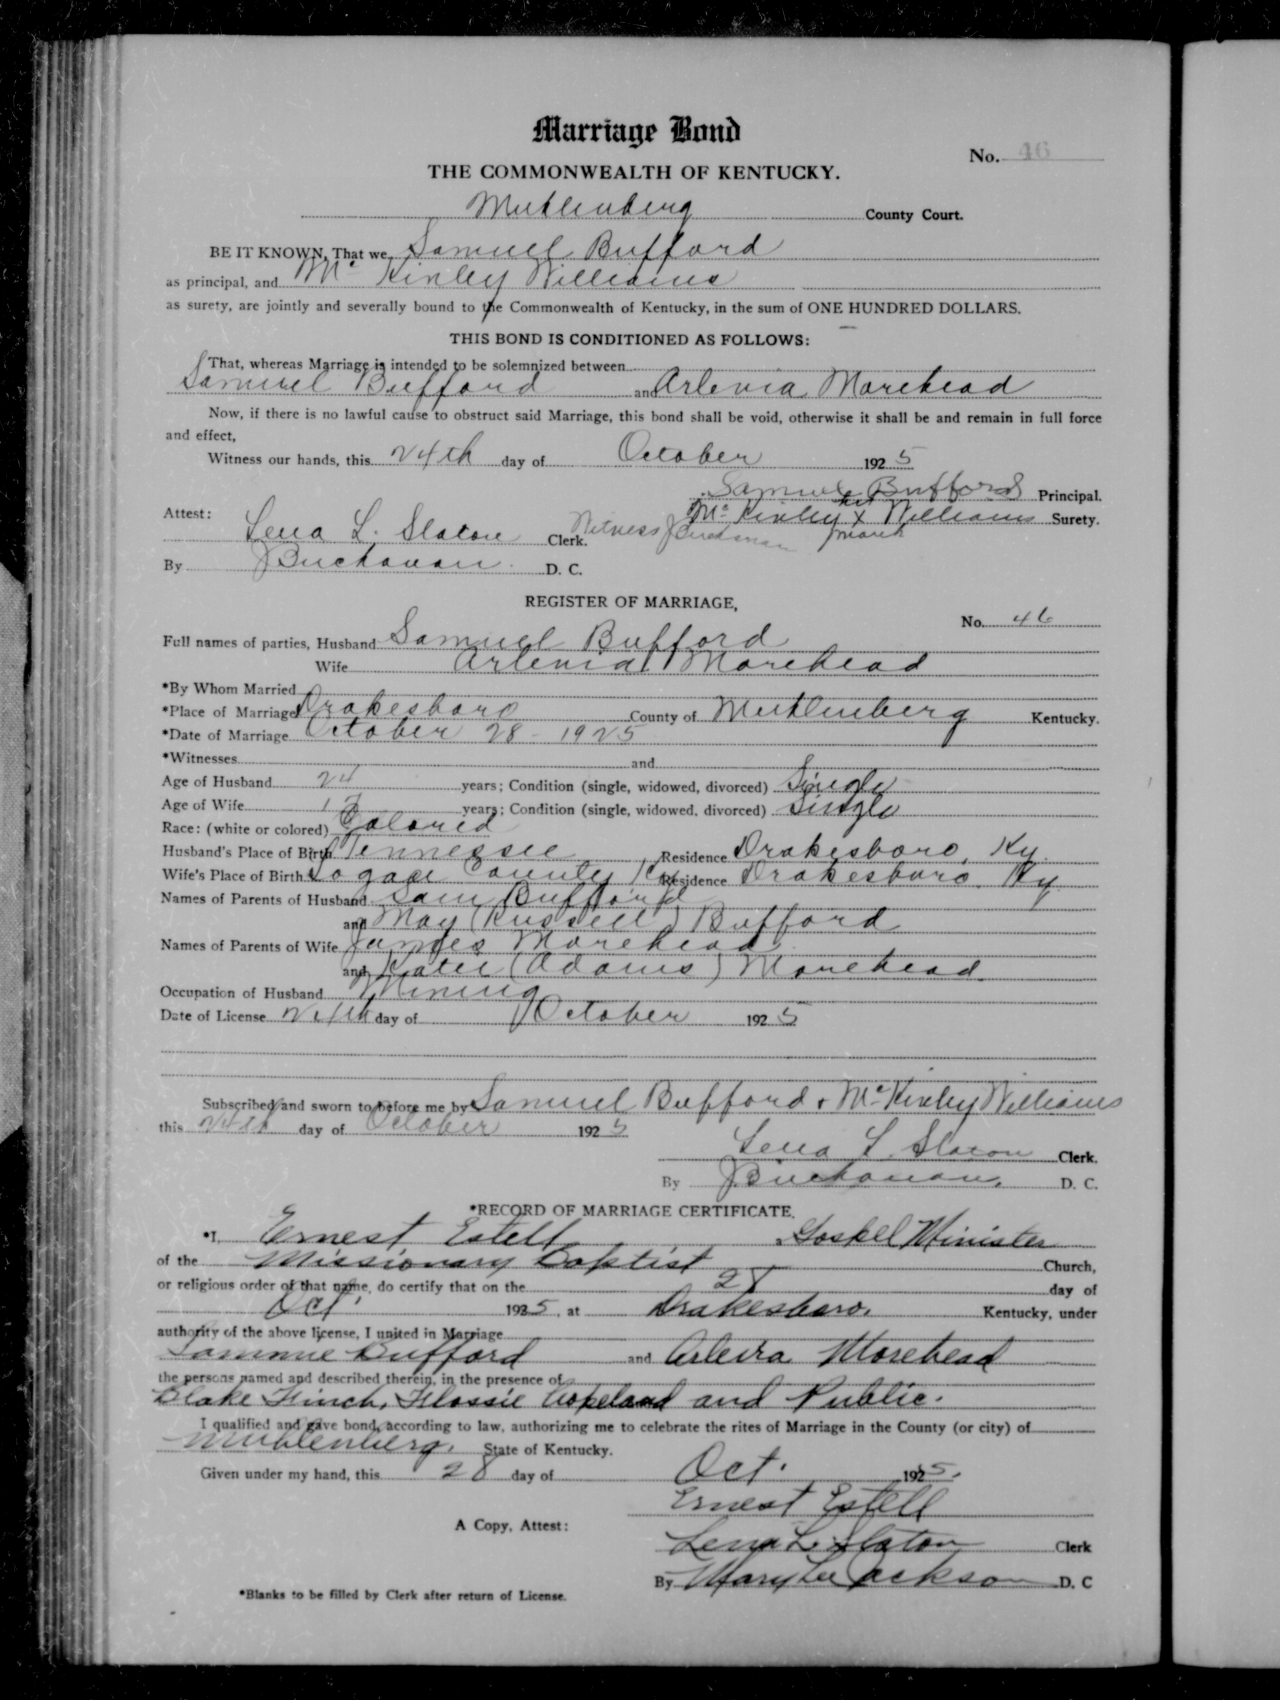 Marriage Bond
No. 46
THE COMMONWEALTH OF KENTUCKY.
Muhlenberg County Court.
BE IT KNOWN, That we Samuel Bufford
as principal, and Mc Kinley Williams
as surety, are jointly and severally bound to the Commonwealth of Kentucky, in the sum of ONE HUNDRED DOLLARS.
THIS BOND IS CONDITIONED AS FOLLOWS:
That, whereas Marriage is intended to be solemnized between
Samuel Bufford and Arlevia Morehead
Now, if there is no lawful cause to obstruct said Marriage, this bond shall be void, otherwise it shall be and remain in full force
and effect,
Witness our hands, this 24th day of October 1925
Samuel Bufford Principal.
his
Attest: Mc Kinley x Williams Surety.
Lena L. Slaton Clerk. Witness J Buchanan mark
By J Buchanan. D. C.
REGISTER OF MARRIAGE,
No. 46
Full names of parties, Husband Samuel Bufford
Wife Arlevia Morehead
*By Whom Married
*Place of Marriage Drakesboro County of Muhlenberg Kentucky.
*Date of Marriage October 28 - 1925
*Witnesses and
Age of Husband 24 years; Condition (single, widowed, divorced) Single
Age of Wife years; Condition (single, widowed, divorced) Single
Race: (white or colored) Colored
Husband's Place of Birth Tennessee Residence Drakesboro, Ky.
Wife's Place of Birth Logan County Ky Residence Drakesboro, Ky
Names of Parents of Husband Sam Bufford
and May (Russell) Bufford
Names of Parents of Wife James Morehead
and Katie (Adams) Morehead
Occupation of Husband Mining
Date of License 24th day of October 1925
Subscribed and sworn to before me by Samuel Bufford & Mc Kinley Williams
this 24th day of October 1925
Lena L. Slaton Clerk.
By J Buchanan. D. C.
*RECORD OF MARRIAGE CERTIFICATE.
*I, Ernest Estell, Gospel Minister
of the Missionary Baptist Church,
or religious order of that name, do certify that on the 28 day of
Oct. 1925, at Drakesboro, Kentucky, under
authority of the above license, I united in Marriage
Sammie Bufford and Morehead
the persons named and described therein, in the presence of
Blake Finch, Flossie Copeland and Public.
I qualified and gave bond, according to law, authorizing me to celebrate the rites of Marriage in the County (or city) of
Muhlenberg, State of Kentucky.
Given under my hand, this 28 day of Oct. 1925.
Ernest Estell
A Copy, Attest:
Lena L. Slaton Clerk
By Mary Lee Jackson D. C
*Blanks to be filled by Clerk after return of License.